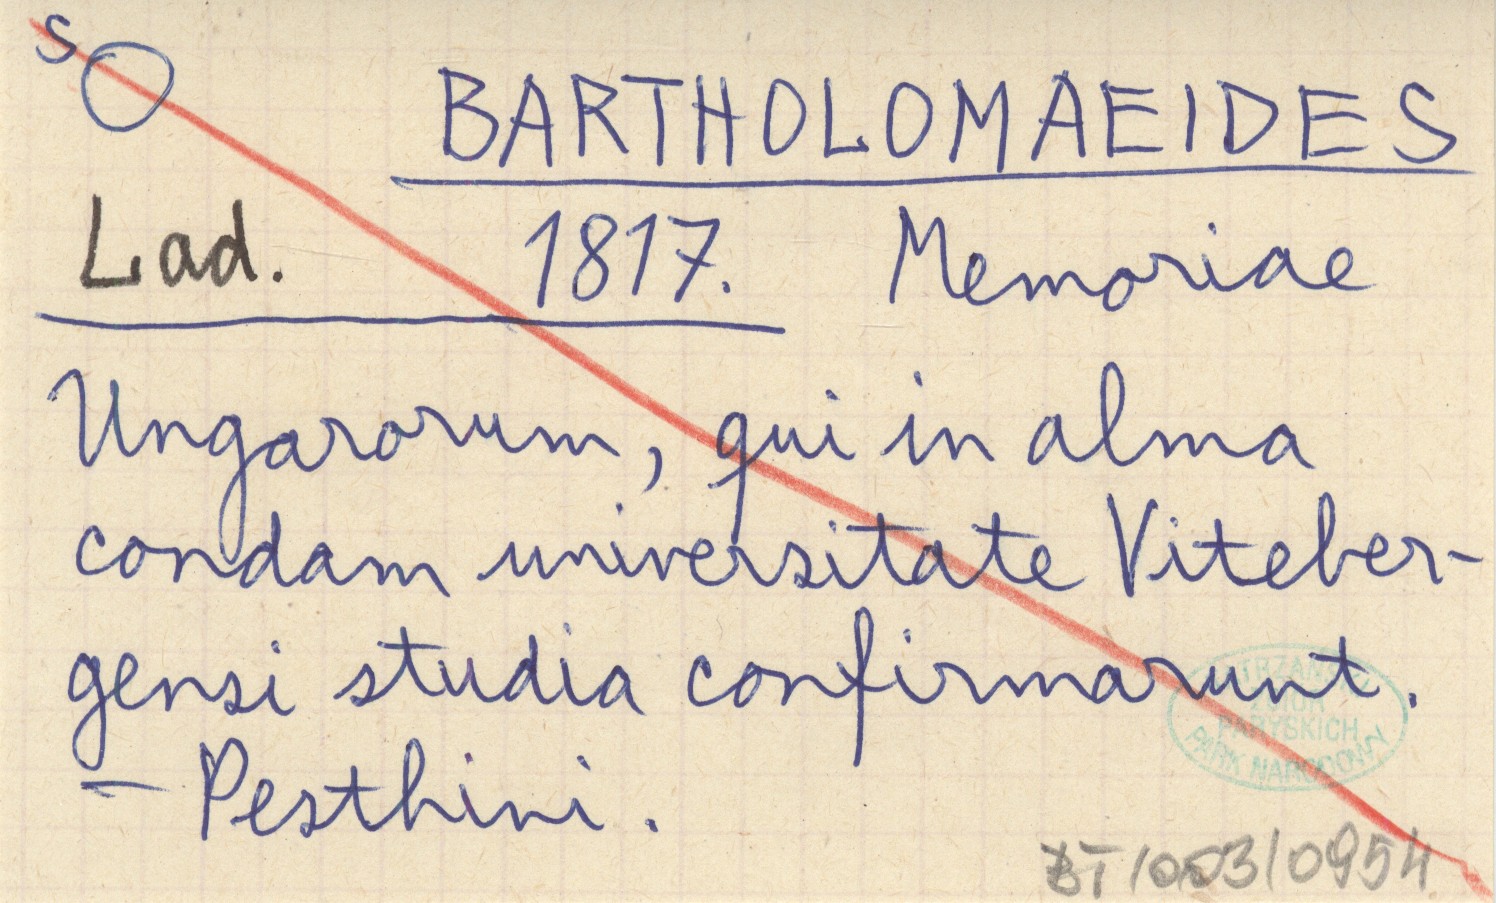 S
BARTHOLOMAEIDES
Lad. 1817. Memoriae
Ungarorum, qui in alma
condam universitate Viteber-
gensi studia confirmarunt.
– Pesthini.
TATRZAŃSKI
ZBIÓR
PARYSKICH
PARK NARODOWY
BT/053/0954